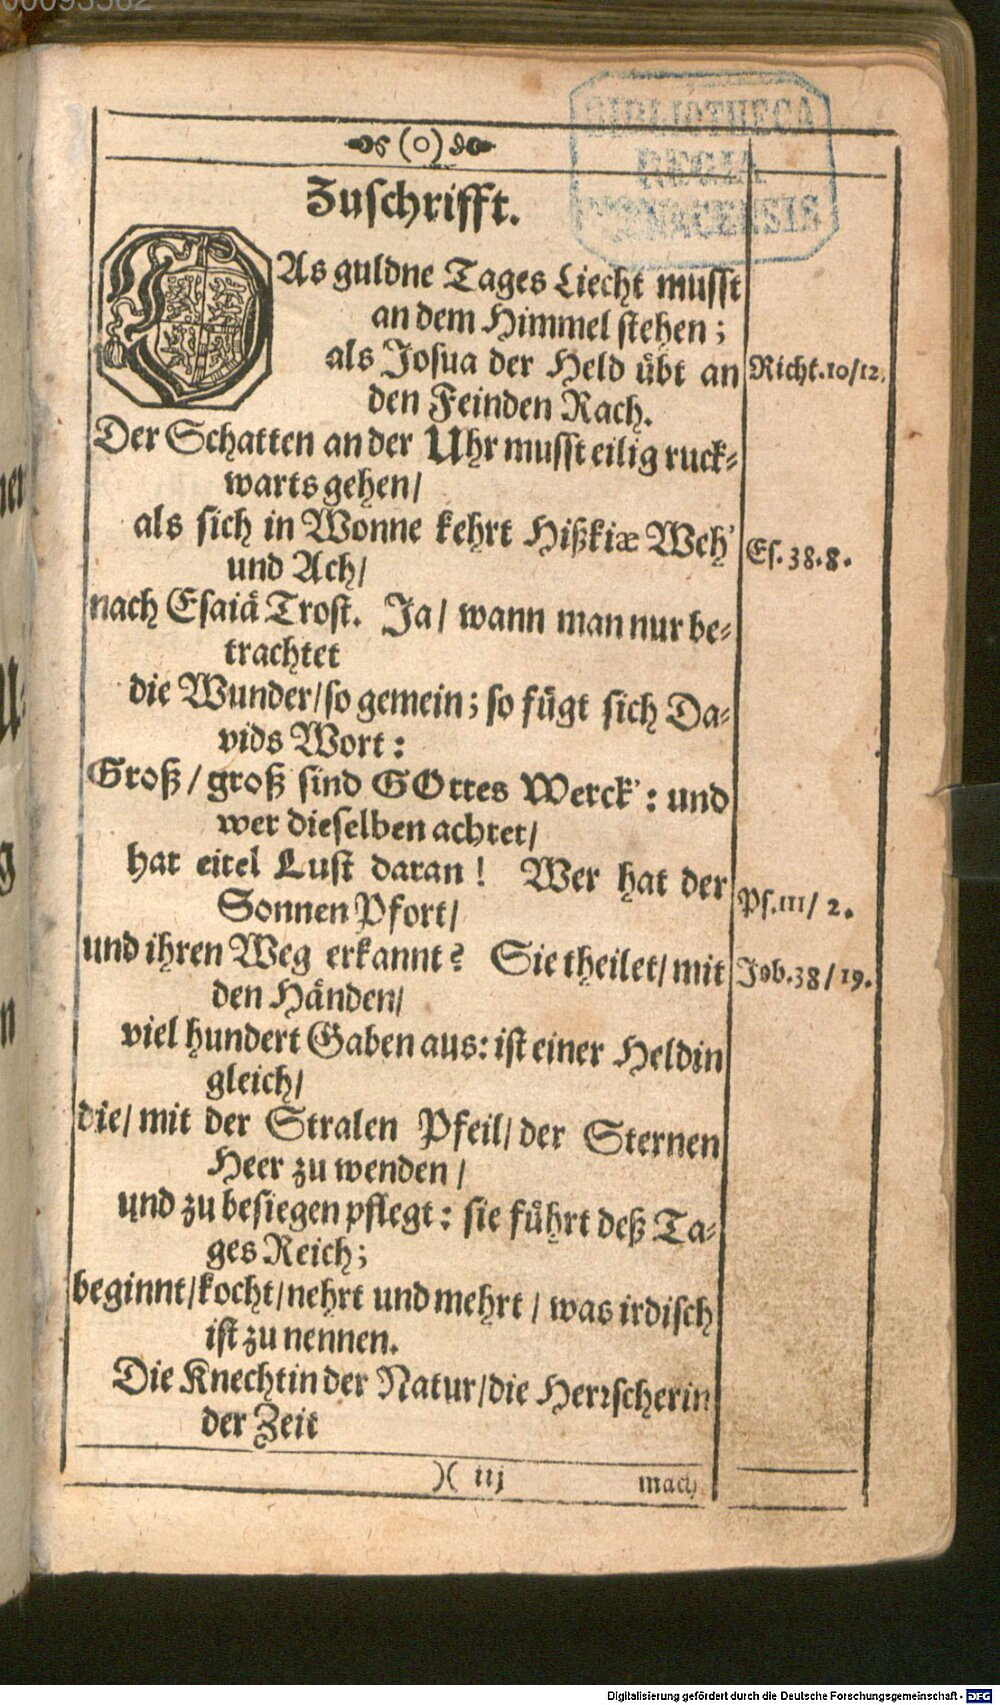 00093582
BIBLIOTHECA
REGIA
MONACENSIS
(O)
Zuschrifft.
DAs guldne Tages Liecht musst
an dem Himmel stehen;
als Josua der Held übt an
Richt. 10/12.
den Feinden Rach.
Der Schatten an der Uhr musst eilig ruck-
warts gehen/
als sich in Wonne kehrt Hißkiæ Weh'
Es. 38. 8.
und Ach/
nach Esaiä Trost. Ja/ wann man nur be-
trachtet
die Wunder/ so gemein; so fügt sich Da-
vids Wort:
Groß/ groß sind GOttes Werck': und
wer dieselben achtet/
hat eitel Lust daran! Wer hat der
Ps. 111/ 2.
Sonnen Pfort/
und ihren Weg erkannt? Sie theilet/ mit
Job. 38/ 19.
den Händen/
viel hundert Gaben aus: ist einer Heldin
gleich/
die/ mit der Stralen Pfeil/ der Sternen
Heer zu wenden/
und zu besiegen pflegt: sie führt deß Ta-
ges Reich;
beginnt/ kocht/ nehrt und mehrt/ was irdisch
ist zu nennen.
Die Knechtin der Natur/ die Herrscherin
der Zeit
)( iij
mach
Digitalisierung gefördert durch die Deutsche Forschungsgemeinschaft - DFG